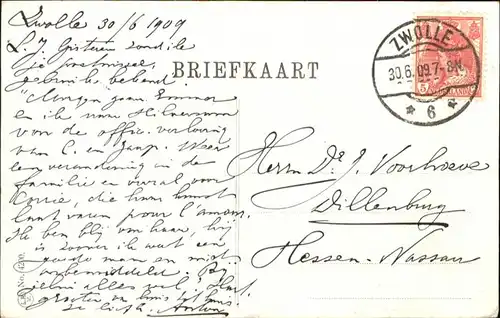 Zwolle 30/6 1909
L. J. Gisteren zond ik
je
gebruik bekend.
"Morgen gaan Emma
en ik naar Hilversum
voor de offic. verloving
van C. en Jaap. Weer
een verandering in de
familie en vooral voor
Corrie, die haar kunst
laat varen pour l'amour.
Ik ben blij voor haar, hij
is zoover ik weet een
goede man en niet
onbemiddeld. Bij
jelui alles wel? Hart.
groeten van huis tot huis.
Je liefh. Anton
BRIEFKAART
ZWOLLE
30.6.09.7-8N.
6
5
Herrn Dr J. Voorhoeve
Dillenburg
Hessen-Nassau
No. 4200